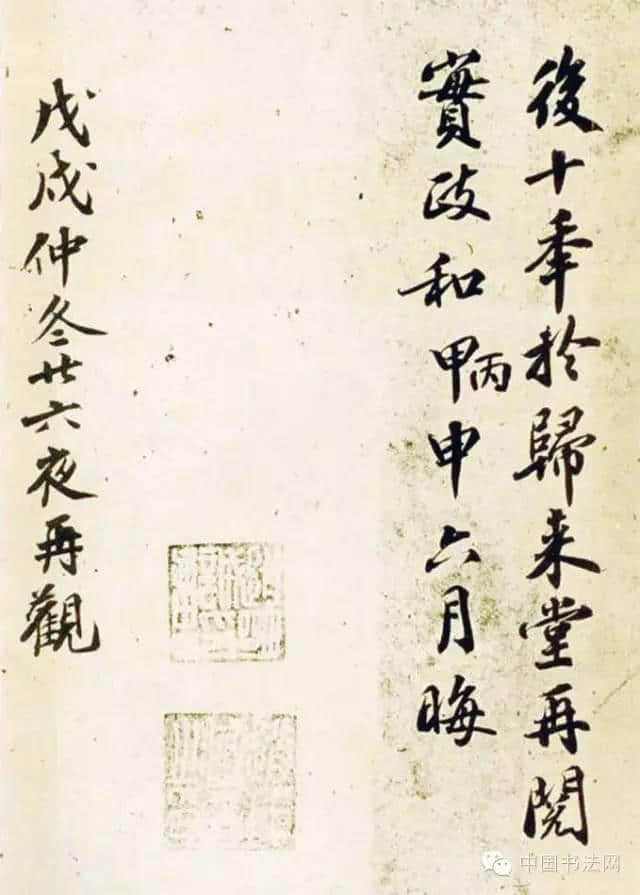 後十年於歸来堂再閱
實政和甲丙申六月晦
戊戌仲冬廿六夜再觀
中国书法网